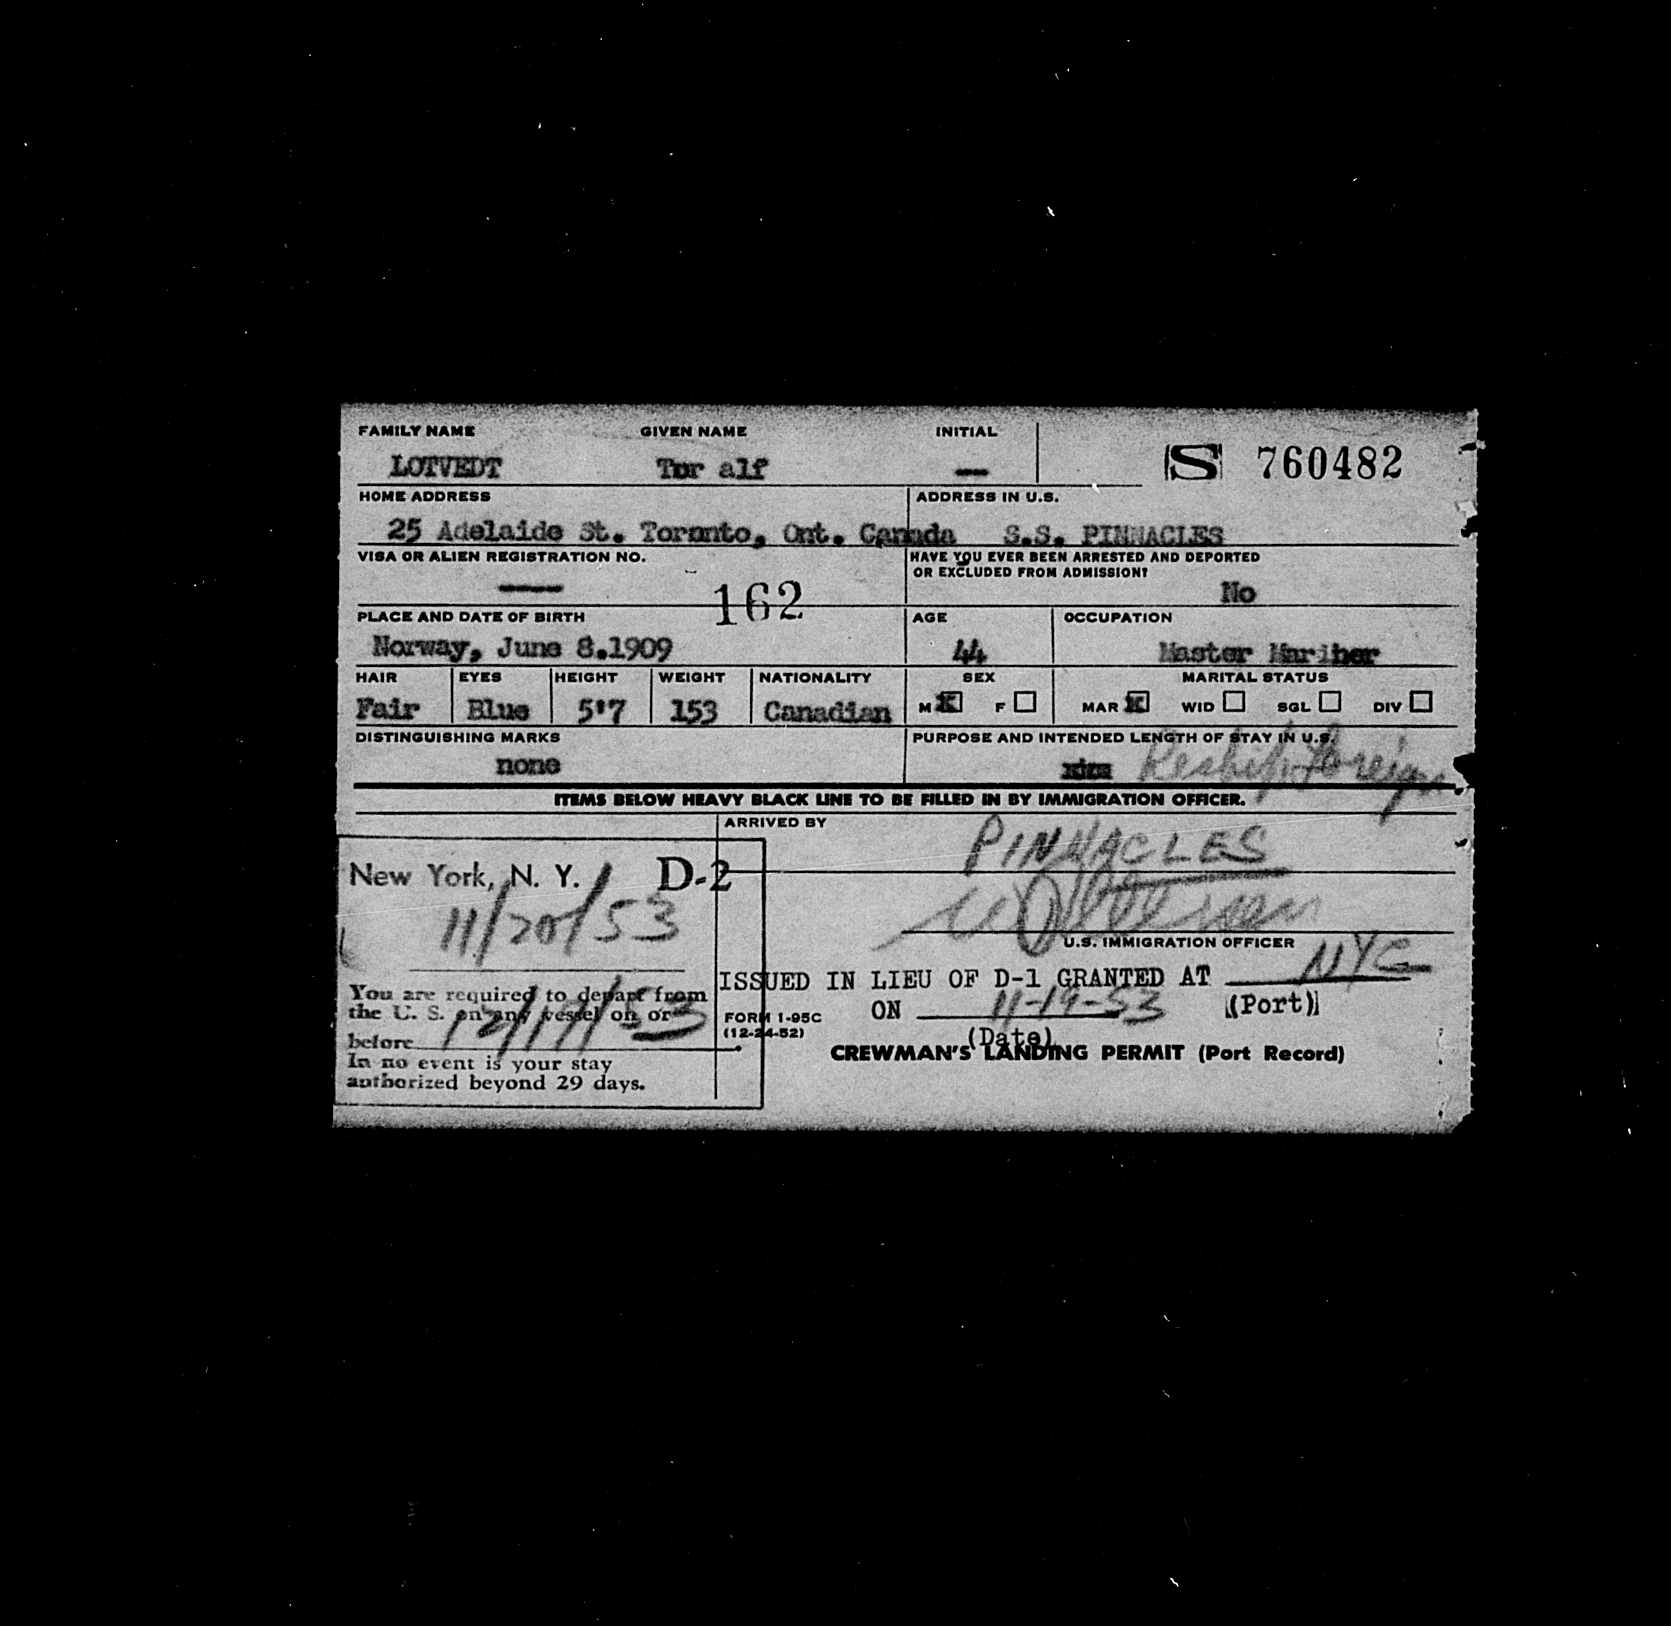 FAMILY NAME GIVEN NAME INITIAL
LOTVEDT Tor alf — S 760482
HOME ADDRESS ADDRESS IN U.S.
25 Adelaide St. Toronto, Ont. Canada S.S. PINNACLES
VISA OR ALIEN REGISTRATION NO. HAVE YOU EVER BEEN ARRESTED AND DEPORTED
OR EXCLUDED FROM ADMISSION?
—— 162 No
PLACE AND DATE OF BIRTH AGE OCCUPATION
Norway, June 8.1909 44 Master Mariner
HAIR EYES HEIGHT WEIGHT NATIONALITY SEX MARITAL STATUS
Fair Blue 5'7 153 Canadian M X F MAR X WID SGL DIV
DISTINGUISHING MARKS PURPOSE AND INTENDED LENGTH OF STAY IN U.S.
none Reship foreign
ITEMS BELOW HEAVY BLACK LINE TO BE FILLED IN BY IMMIGRATION OFFICER.
ARRIVED BY
PINNACLES
New York, N. Y. D-2
11/20/53
U.S. IMMIGRATION OFFICER
ISSUED IN LIEU OF D-1 GRANTED AT NYC
(Port)
ON 11-19-53
(Date)
You are required to depart from
the U. S. on any vessel on or
before 12/17/53
In no event is your stay
authorized beyond 29 days.
FORM I-95C
(12-24-52)
CREWMAN'S LANDING PERMIT (Port Record)